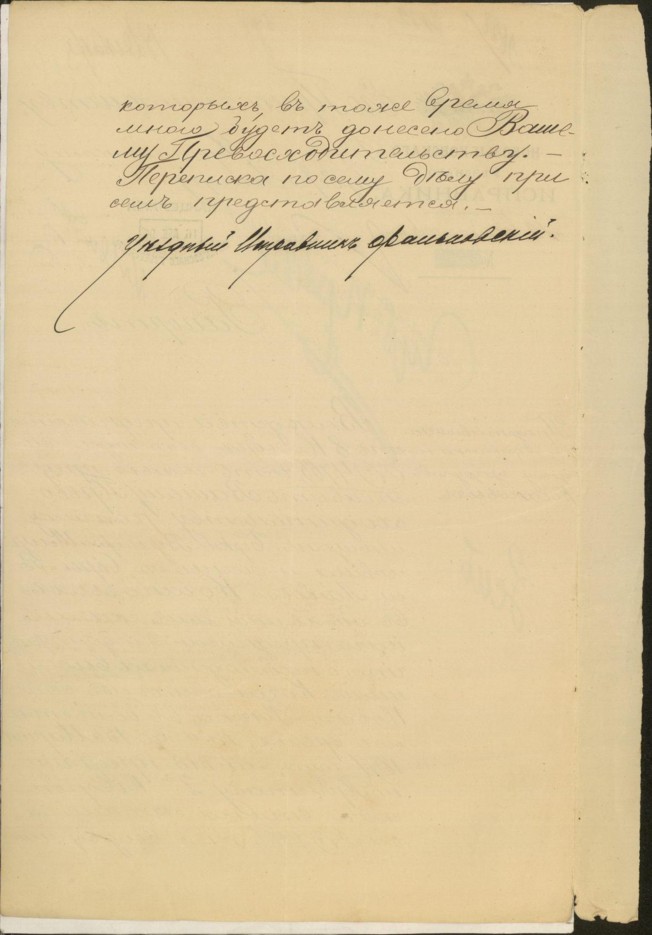 которыхъ въ тоже время
мною будетъ донесено Ваше-
му Превосходительству. —
Переписка по сему дѣлу при
семъ представляется. —
Уѣздный Исправникъ Фальковскій.